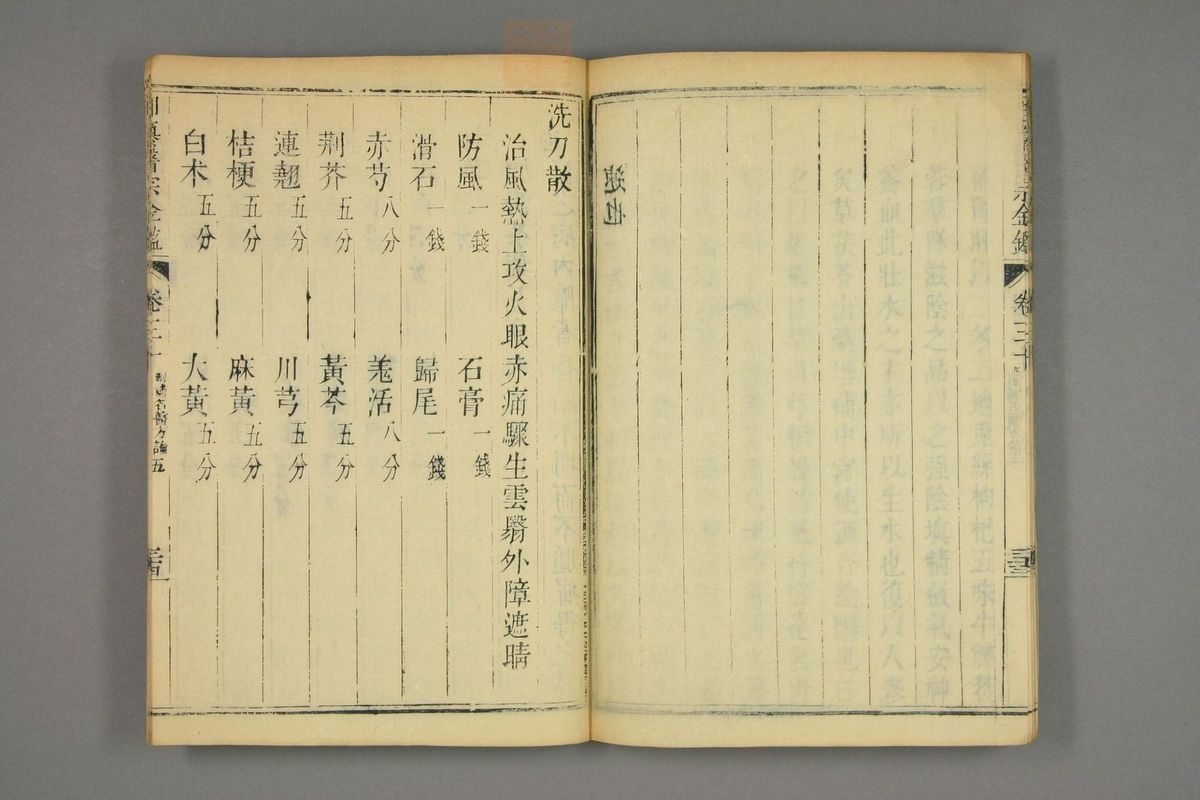 金鑑
卷三十
速也
洗刀散
治風熱上攻火眼赤痛驟生雲翳外障遮睛
防風一錢 石膏一錢
滑石一錢 歸尾一錢
赤芍八分 羗活八分
荆芥五分 黃芩五分
連翹五分 川芎五分
桔梗五分 麻黃五分
白术五分 大黃五分
御纂醫宗金鑑
卷三十
刪補名醫方論五